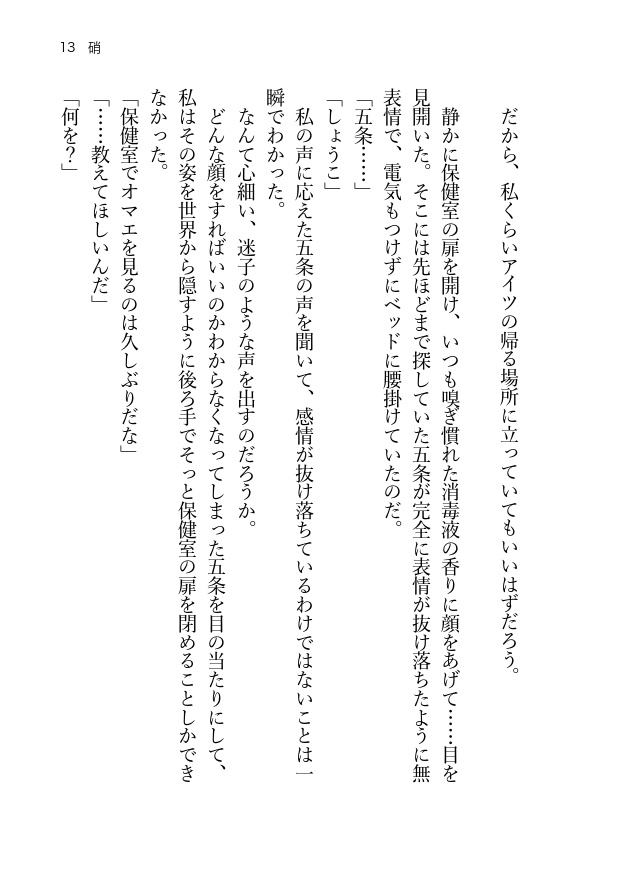 13 硝
だから、私くらいアイツの帰る場所に立っていてもいいはずだろう。
静かに保健室の扉を開け、いつも嗅ぎ慣れた消毒液の香りに顔をあげて……目を
見開いた。そこには先ほどまで探していた五条が完全に表情が抜け落ちたように無
表情で、電気もつけずにベッドに腰掛けていたのだ。
「五条……」
「しょうこ」
私の声に応えた五条の声を聞いて、感情が抜け落ちているわけではないことは一
瞬でわかった。
なんて心細い、迷子のような声を出すのだろうか。
どんな顔をすればいいのかわからなくなってしまった五条を目の当たりにして、
私はその姿を世界から隠すように後ろ手でそっと保健室の扉を閉めることしかでき
なかった。
「保健室でオマエを見るのは久しぶりだな」
「……教えてほしいんだ」
「何を？」